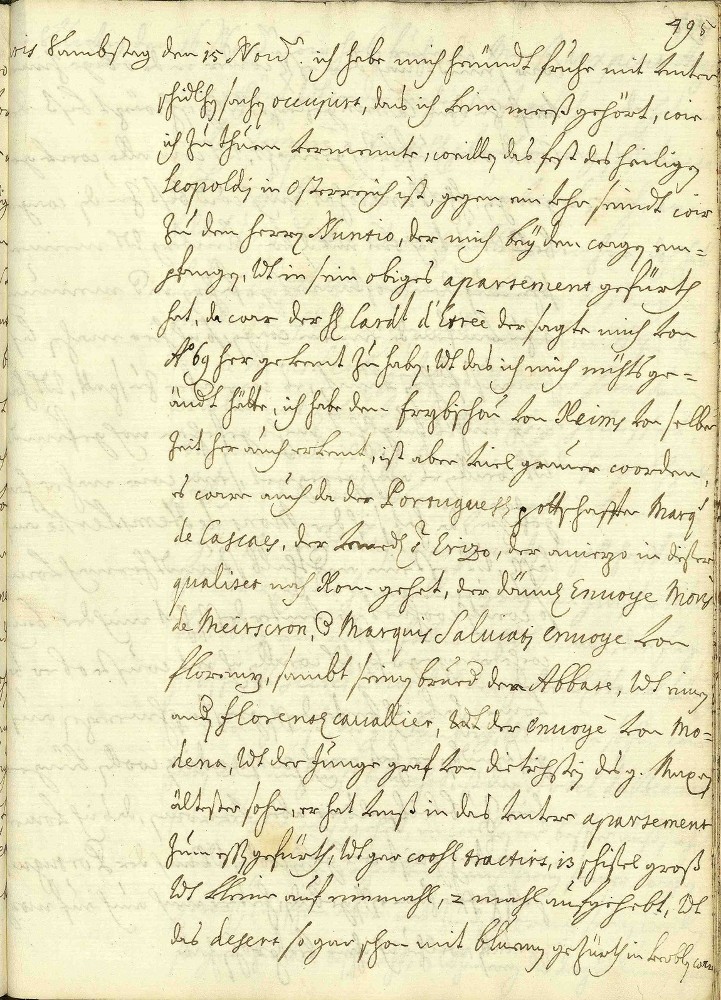 495
ris Sambstag den 15 Nov. ich habe mich heündt frühe mit unter
schidlichen sachen occupirt, das ich kein meeß gehört, wie
ich zu thuen vermeinte, weillen das fest des heiligen
Leopoldj in Österreich ist, gegen ein Uhr seindt wir
zu dem herrn Nuntio, der mich beÿ den wagen em=
pfangen, Vdt in sein obiges apartement gefürth
hat, da war der H Cardl d'Etrée der sagte mich von
Aº 69 her gekent zu haben, Vdt das ich mich nichts ge=
ändt hätte, ich habe den Erzbischou von Reims von selber
Zeit her auch erkent, ist aber viel grauer worden,
es ware auch da der Portuguess pottschaffter Marqs
de Cascaes, der Vened. Erizo, der aniezo in diser
qualitet nach Rom gehet, der dännes Envoye Mons
de Meirscron, Marquis Salviatj envoye von
florenz, sambt seinen brued dem Abbate, Vdt einen
andern florenz cavallier, Vdt der envoyé von Mo=
dena, Vdt der Junge graf von dietrichstein des g. Maxen
ältester sohn, er hat vnß in das vntere apartement
zum essen gefürth, Vdt gar woohl tractirt, 13 schisel groß
Vdt kleine auf einmahl, 2 mahl aufgehebt, Vdt
das desert so gar schon mit bluemen gezürth in